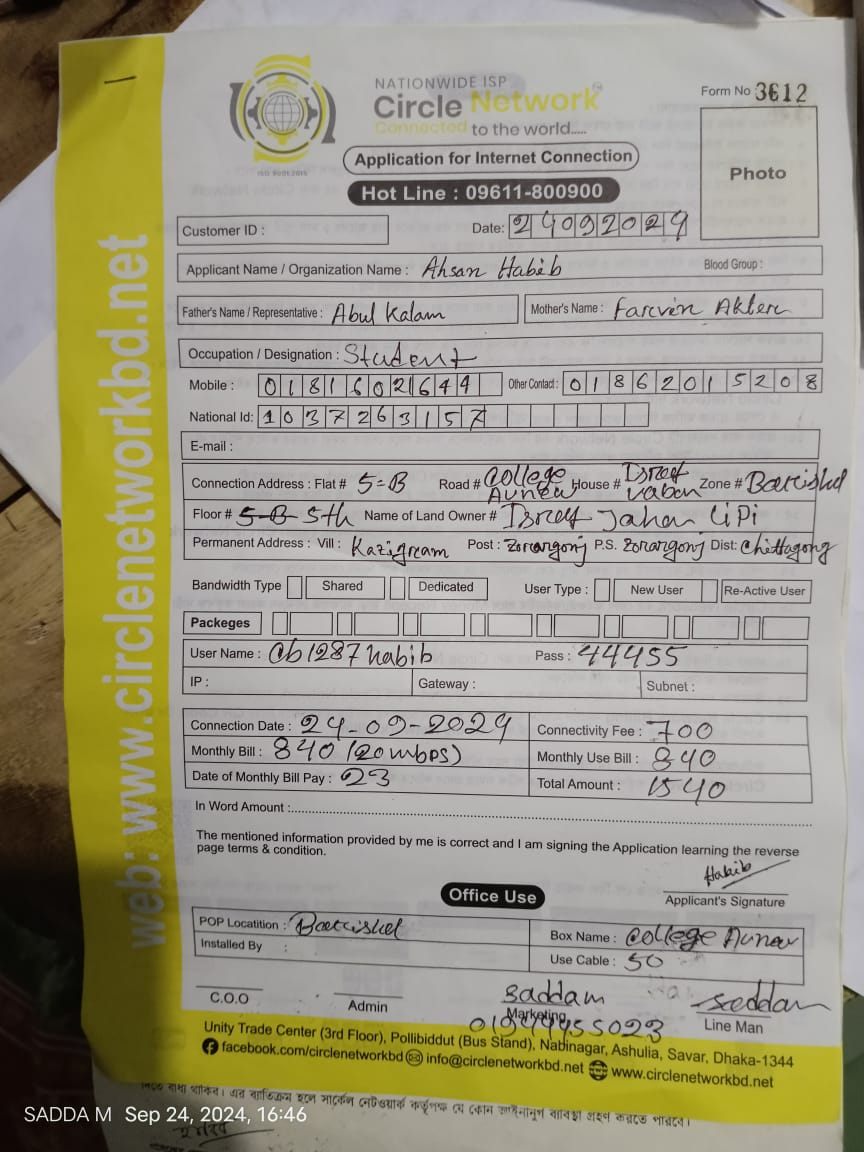 NATIONWIDE ISP
Circle Network
Connected to the world.....
ISO 9001:2015
Form No 3612
Application for Internet Connection
Hot Line : 09611-800900
Photo
Customer ID :
Date: 24092024
Applicant Name / Organization Name : Ahsan Habib
Blood Group :
Father's Name / Representative : Abul Kalam
Mother's Name : Farvin Akter
Occupation / Designation : Student
Mobile : 01816021644
Other Contact : 01862015208
National Id: 1037263157
E-mail :
Connection Address : Flat # 5-B Road # College Avnew House # Israt Vaban Zone # Barishal
Floor # 5th Name of Land Owner # Israt Jahan LiPi
Permanent Address : Vill : Kazigram Post : Zorargonj P.S. Zorargonj Dist: Chittagong
Bandwidth Type Shared Dedicated User Type : New User Re-Active User
Packeges
User Name : cb1287habib Pass : 44455
IP : Gateway : Subnet :
Connection Date : 24-09-2024 Connectivity Fee : 700
Monthly Bill : 840 (20 mbps) Monthly Use Bill : 840
Date of Monthly Bill Pay : 23 Total Amount : 1540
In Word Amount :
The mentioned information provided by me is correct and I am signing the Application learning the reverse
page terms & condition.
Habib
Applicant's Signature
Office Use
POP Locatition : Barishal Box Name : College Avnew
Installed By : Use Cable : 50
C.O.O Admin Saddam Marketing Saddam Line Man
Unity Trade Center (3rd Floor), Pollibiddut (Bus Stand), Nabinagar, Ashulia, Savar, Dhaka-1344
facebook.com/circlenetworkbd info@circlenetworkbd.net www.circlenetworkbd.net
web: www.circlenetworkbd.net
দিতে বাধ্য থাকিব। এর ব্যতিক্রম হলে সার্কেল নেটওয়ার্ক কর্তৃপক্ষ যে কোন আইনানুগ ব্যবস্থা গ্রহণ করতে পারবে।
SADDA M Sep 24, 2024, 16:46